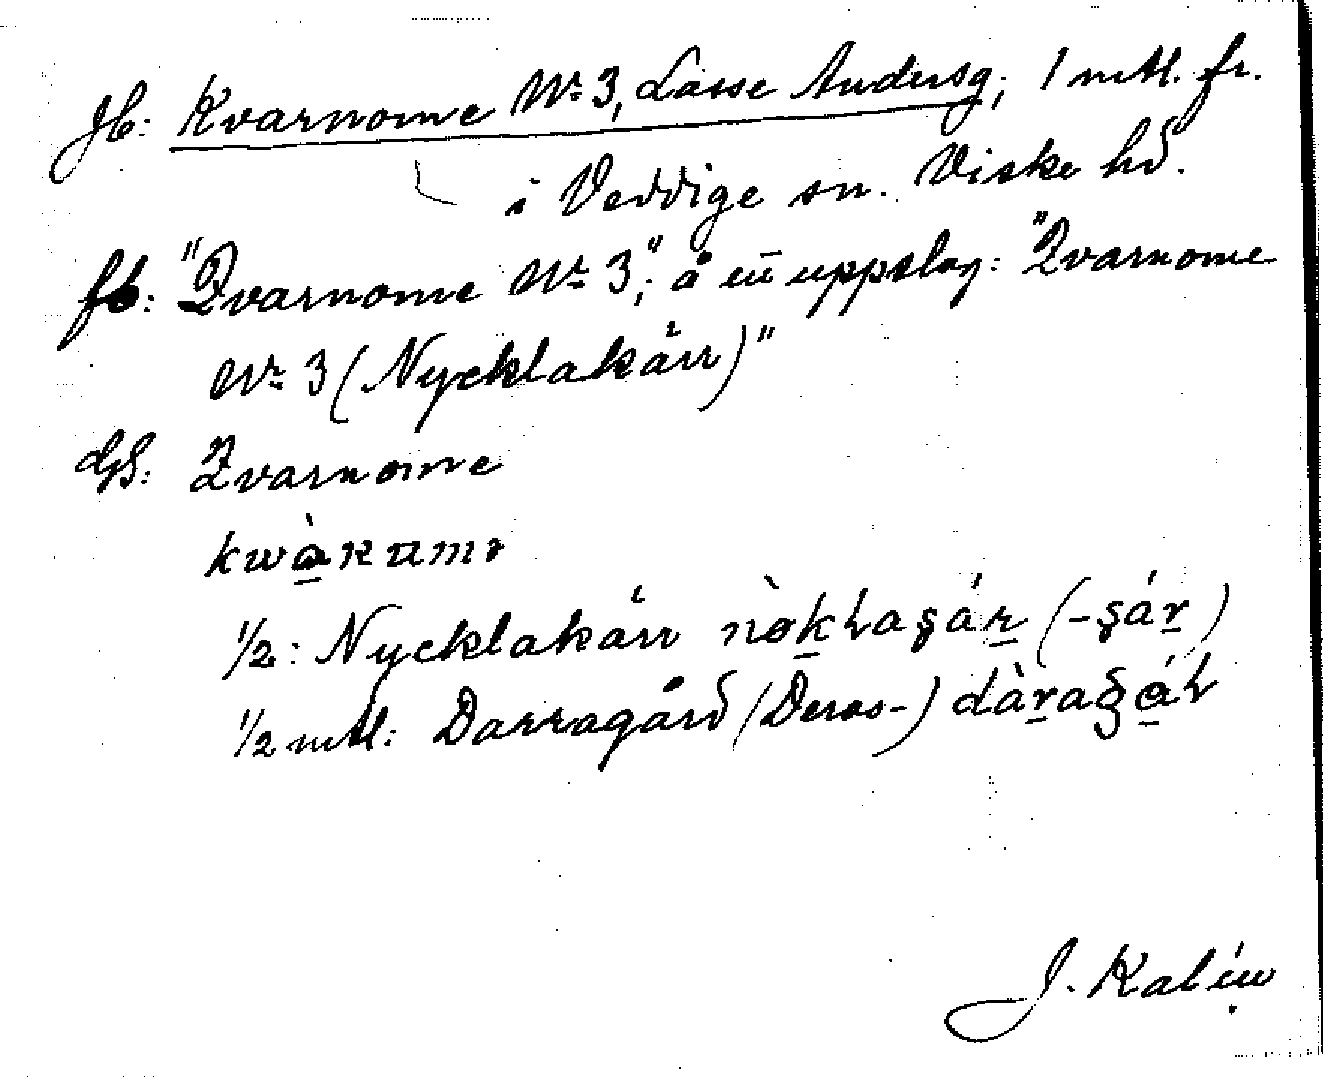 Jb: Kvarnome Nr 3, Lasse Andersg, 1 mtl. fr.
i Veddige sn. Viske hd.
fb: "Qvarnome Nr 3"; å en uppslag: "Qvarnome
Nr 3 (Nycklakärr)"
GS: Qvarnome
½: Nycklakärr
½ mtl: Darragård (Deras-)
J. Kalén